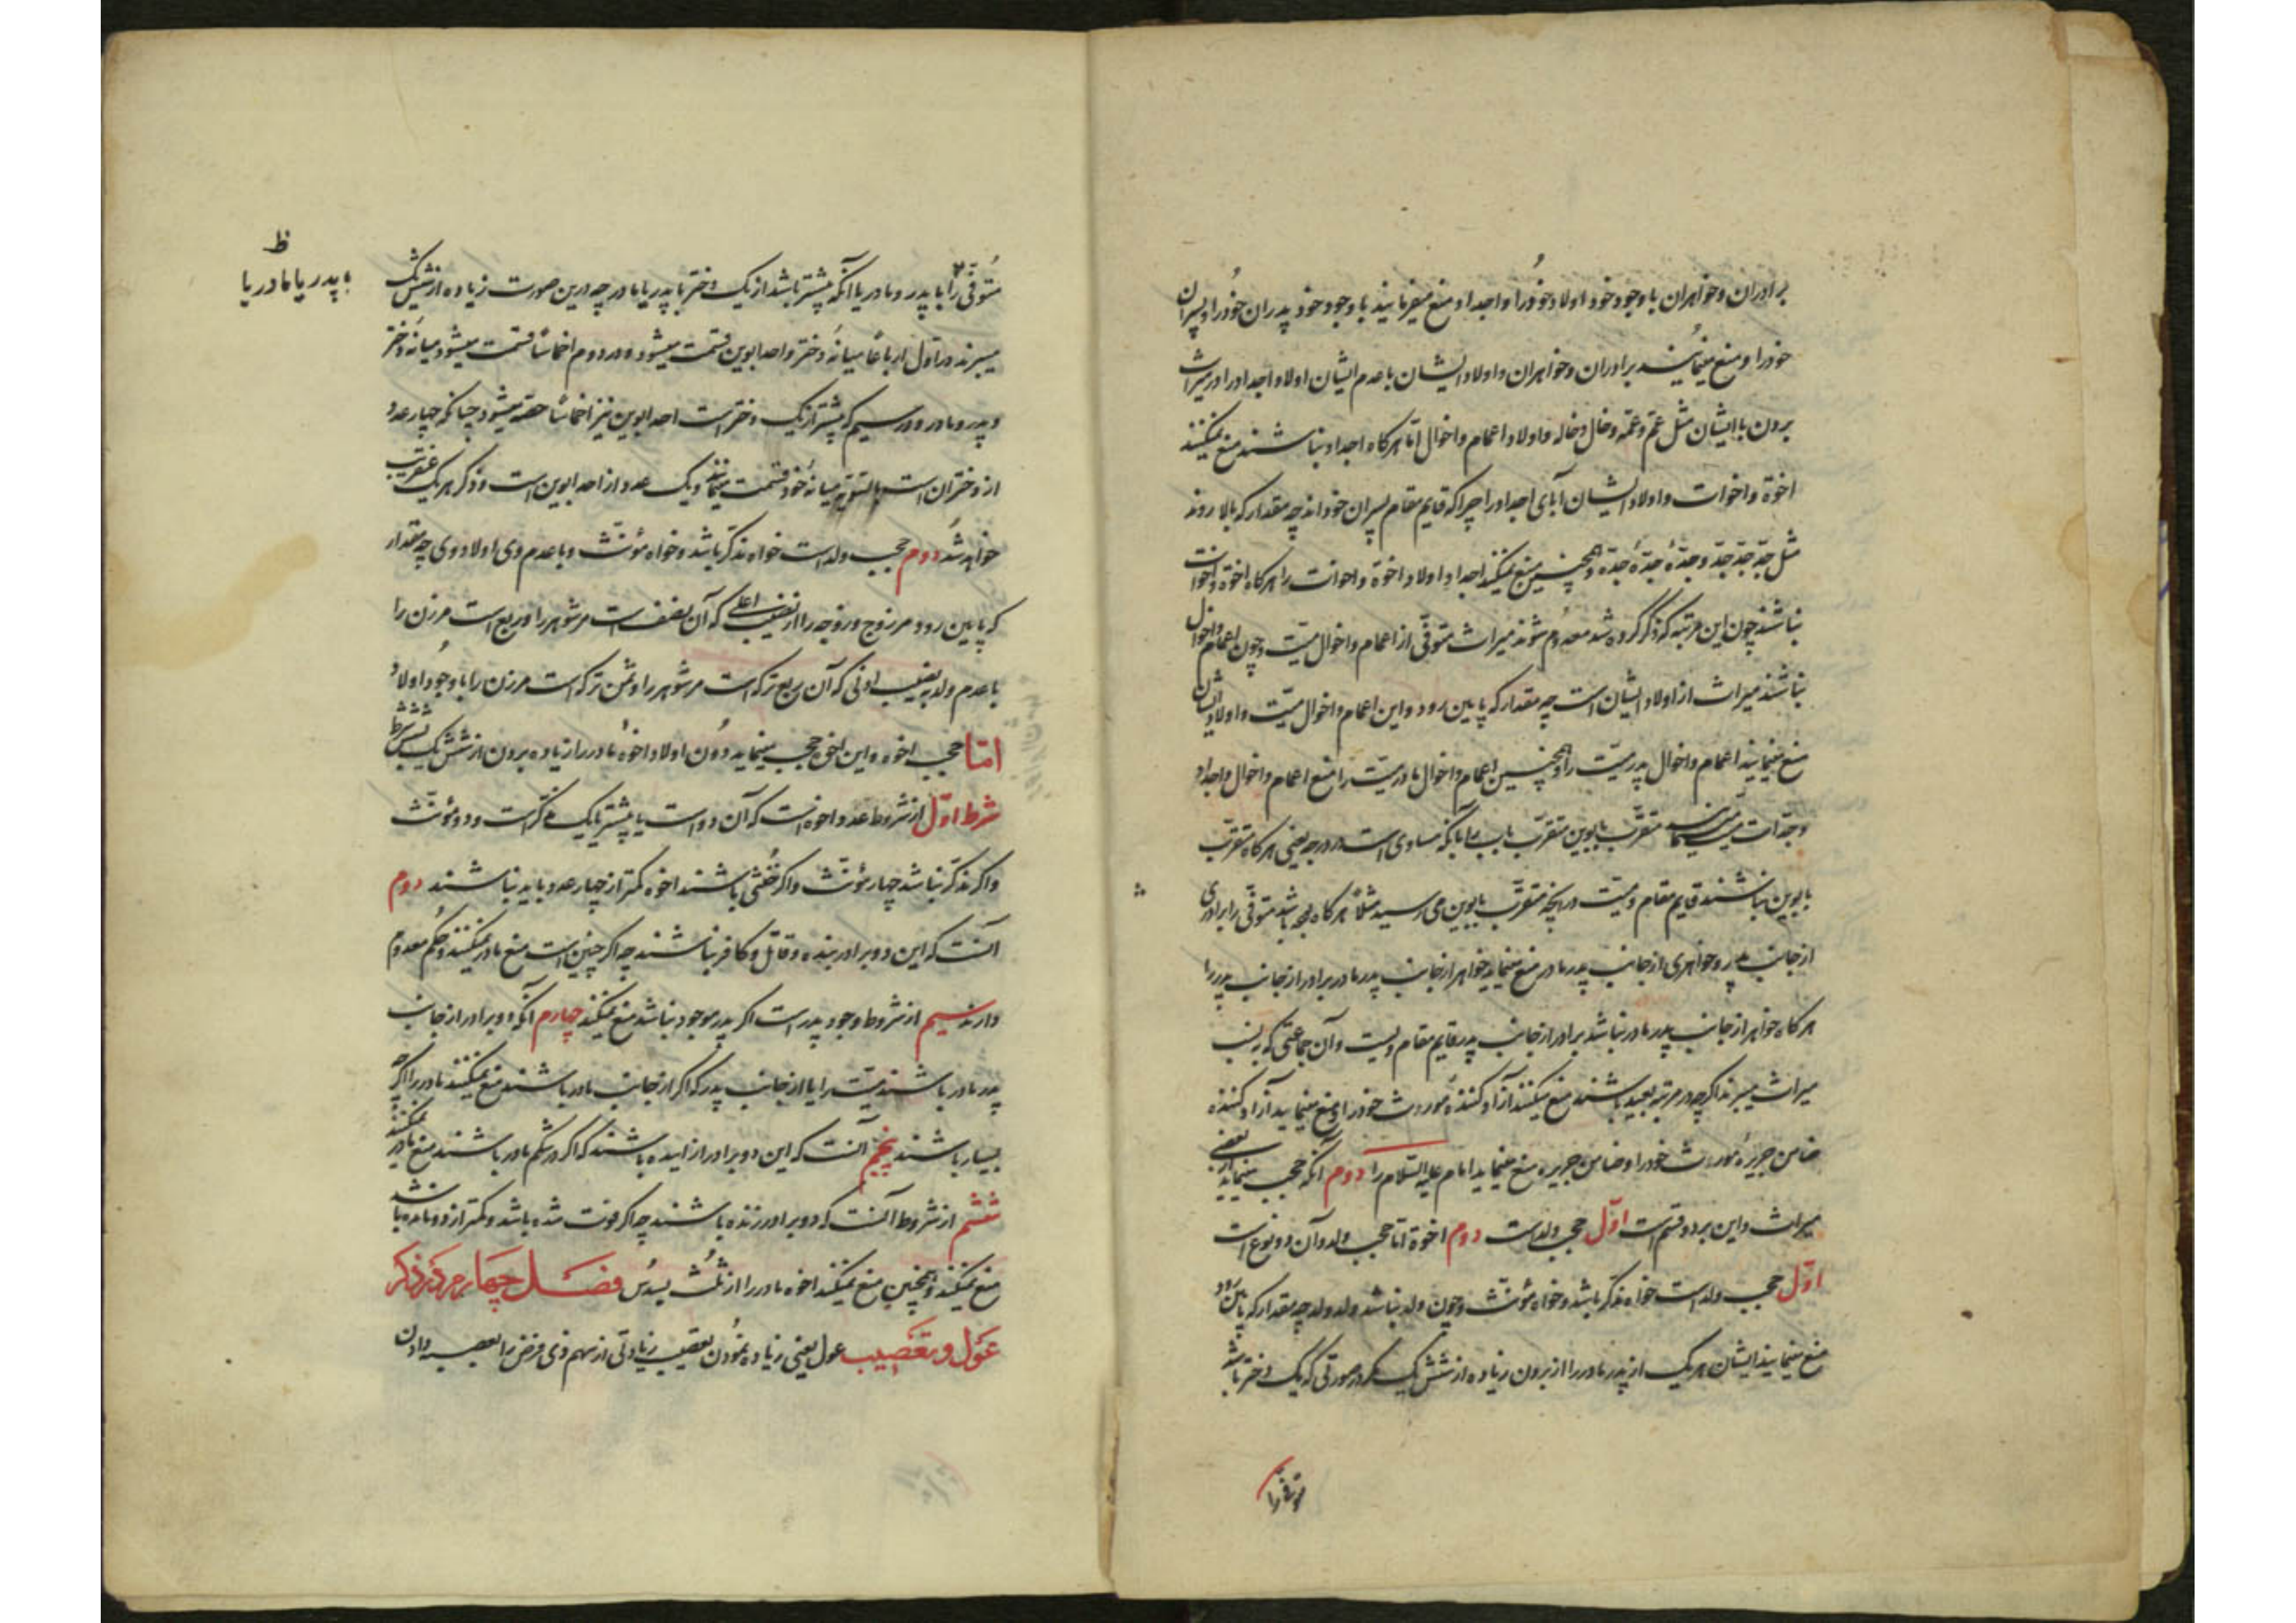 برادران و خواهران با وجود خود اولاد خود را و اجداد منع میفرمایند با وجود خود پدران خود را و پسران
خود را و منع مینمایند برادران و خواهران و اولاد ایشان با عدم ایشان اولاد اجداد را در میراث
بردن با ایشان مثل عم و عمه و خال و خاله و اولاد اعمام و اخوال اما هرکاه اجداد نباشند منع نمیکنند
اخوة و اخوات و اولاد ایشان آبای اجداد را چرا که قایم مقام پسران خوداند چه مقدار که بالا روند
مثل جد جد جد و جدهٔ جدهٔ جده و همچنین منع نمیکنند اجداد اولاد اخوة و اخوات را هرکاه اخوة و اخوات
نباشند چون این مرتبه که ذکر کرده شد معدوم شوند میراث متوفی از اعمام و اخوال میت و چون اعمام و اخوال
نباشند میراث از اولاد ایشان است چه مقدار که پایین رود و این اعمام و اخوال میت و اولاد ایشان
منع مینمایند اعمام و اخوال پدر میت را و همچنین اعمام و اخوال مادر میت را منع اعمام و اخوال و اجداد
و جدات میت متقرب بابوین متقرب باب را با آنکه مساوی است در درجه یعنی هرکاه متقرب
بابوین نباشند قایم مقام و میت در آنچه متقرب بابوین می رسید مثلاً هرکاه بوده باشد متوفی را برادری
از جانب پدر و خواهری از جانب پدر مادر منع مینماید خواهر از جانب پدر مادر برادر از جانب پدر را
هرکاه خواهر از جانب پدر مادر نباشد برادر از جانب پدر قایم مقام ویست و آن جماعتی که به نسب
میراث میبرند اکرچه در مرتبه بعید باشند منع میکنند آزاد کنندهٔ مورث خود را و منع مینماید آزاد کننده
ضامن جریرهٔ مورث خود را و ضامن جریره منع مینماید امام علیه السلام را دوم آنکه حجب مینماید از بعضی
میراث و این بر دو قسم است اول حجب ولد است دوم اخوة اما حجب ولد و آن دو نوع است
اول حجب ولد است خواه مذکر باشد و خواه مؤنث و چون ولد نباشد ولد ولد چه مقدار که پایین رود
منع مینمایند ایشان هر یک از پدر مادر را از بردن زیاده از شش یک مکر در صورتی که یک دختر باشد
متوفی را
متوفی را با پدر و مادر یا آنکه پیشتر باشد از یک دختر با پدر یا مادر چه درین صورت زیاده از شش یک
ظ
با پدر یا مادر یا
میبرند در اول ارباعاً میانهٔ دختر و احد ابوین قسمت میشود و در دوم اخماساً قسمت میشود میانهٔ دختر
و پدر و مادر و در سیم که پیشتر از یک دختر است احد ابوین نیز اخماساً حصه میشود چنانکه چهار عدد
از دختران است بالسویه میانهٔ خود قسمت مینمایند و یک عدد از احد ابوین است و ذکر هر یک عنقریب
خواهد شد دوم حجب ولد است خواه مذکر باشد و خواه مؤنث و با عدم وی اولاد وی چه مقدار
که پایین رود مر زوج و زوجه را از نصیب اعلی که آن نصف است مر شوهر را و ربع است مر زن را
با عدم ولد به نصیب ادنی که آن ربع ترکه است مر شوهر را و ثمن ترکه است مر زن را با وجود اولاد
اما حجب اخوه و این اخوه حجب مینماید دون اولاد اخوه مادر را از زیاده بردن از شش یک بشش شرط
شرط اول از شروط عدد اخوه است که آن دو است یا پیشتر یا یک مذکر است و دو مؤنث
و اکر مذکر نباشد چهار مؤنث و اکر خنثی باشند اخوه کمتر از چهار عدد باید نباشند دوم
آنست که این دو برادر بنده و قاتل و کافر نباشند چه اکر چنین است منع مادر نمیکنند و حکم معدوم
دارند سیم از شروط وجود پدر است اکر پدر موجود نباشد منع نمیکنند چهارم آنکه دو برادر از جانب
پدر مادر باشند میت را یا از جانب پدر که اکر از جانب مادر باشند منع نمیکنند مادر را اکر چه
بسیار باشند پنجم آنست که این دو برادر زاییده باشند که اکر در شکم مادر باشند منع مادر نمیکنند
ششم از شروط آنست که دو برادر زنده باشند چه اکر فوت شده باشد و کمتر از دو مانده باشد
منع نمیکنند و همچنین منع نمیکنند اخوه مادر را از ثلث بسدس فصل چهارم در ذکر
عول و تعصیب عول یعنی زیاده نمودن تعصیب زیادتی از سهم ذی فرض را بعصبه دادن